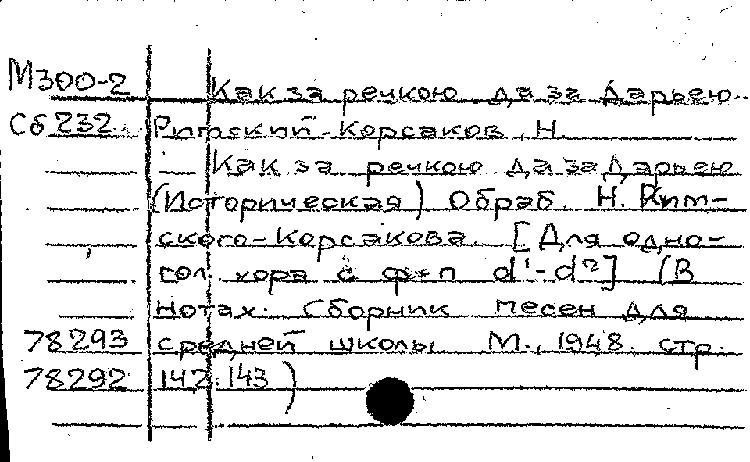 М300-2 Как за речкою да за Дарьею
Сб232 Римский-Корсаков, Н.
— Как за речкою да за Дарьею
(Историческая) Обраб. Н. Рим-
ского-Корсакова. [Для одно-
гол. хора с ф-п d¹-d²] (В
нотах. Сборник песен для
78293 средней школы М., 1948. стр.
78292 142-143)